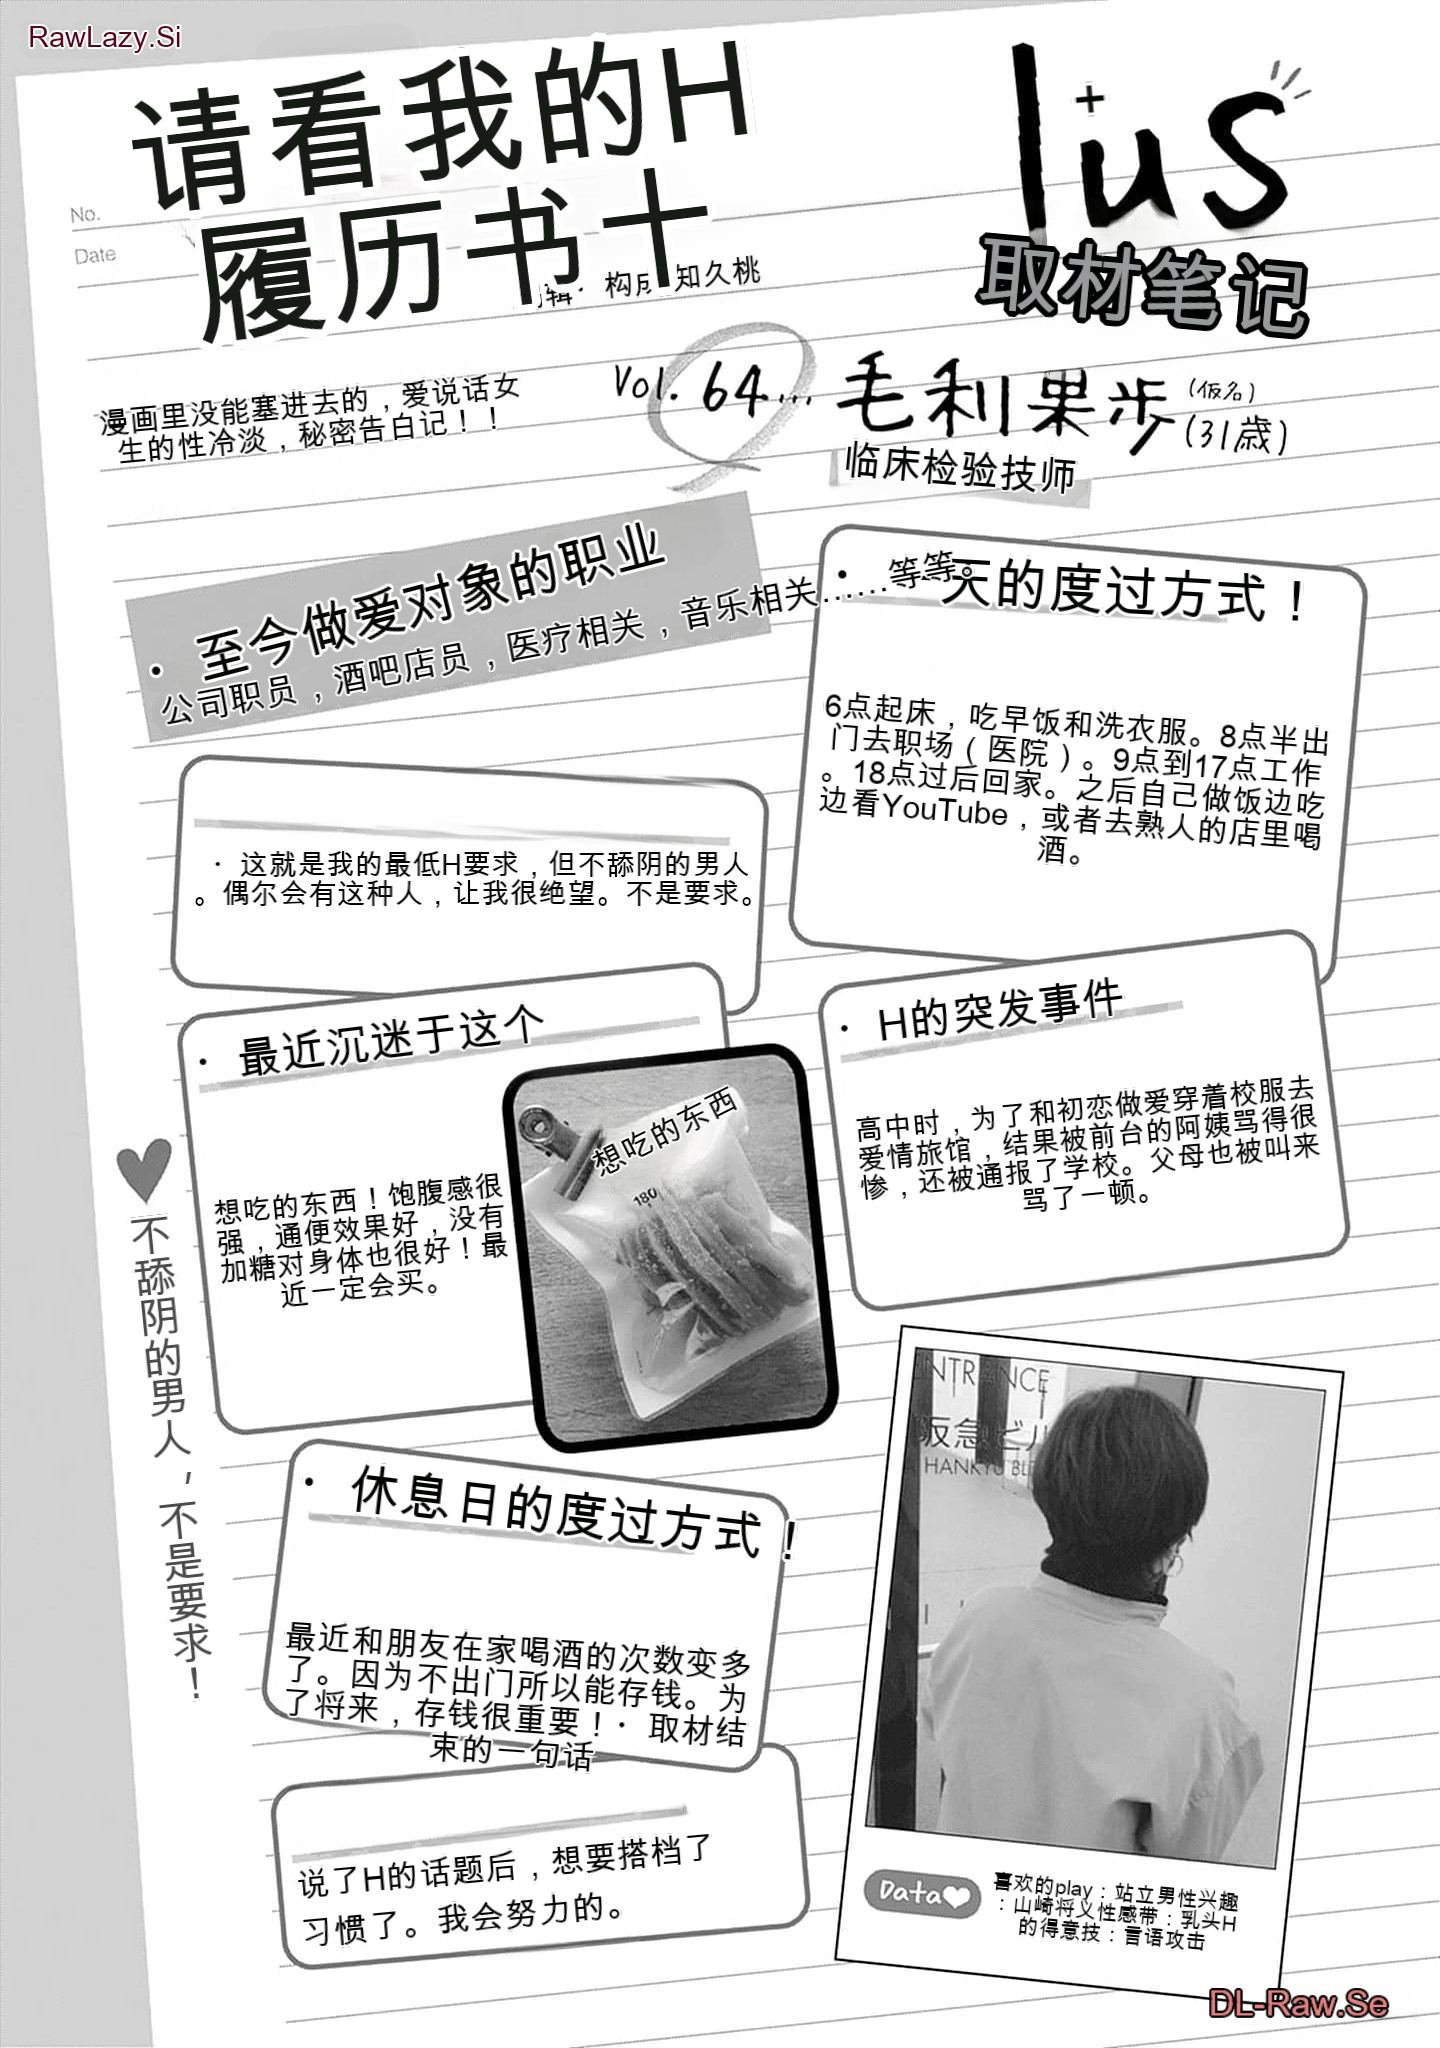 RawLazy.Si
请看我的H
履历书十
No.
Date
辑·构成 知久桃
lus
取材笔记
漫画里没能塞进去的，爱说话女
生的性冷淡，秘密告白记！！
Vol. 64...
毛利果步
(仮名)
(31歳)
临床检验技师
·至今做爱对象的职业
公司职员，酒吧店员，医疗相关，音乐相关……等等。
·一天的度过方式！
6点起床，吃早饭和洗衣服。8点半出
门去职场（医院）。9点到17点工作
。18点过后回家。之后自己做饭边吃
边看YouTube，或者去熟人的店里喝
酒。
·这就是我的最低H要求，但不舔阴的男人
。偶尔会有这种人，让我很绝望。不是要求。
·最近沉迷于这个
想吃的东西！饱腹感很
强，通便效果好，没有
加糖对身体也很好！最
近一定会买。
想吃的东西
180
·H的突发事件
高中时，为了和初恋做爱穿着校服去
爱情旅馆，结果被前台的阿姨骂得很
惨，还被通报了学校。父母也被叫来
骂了一顿。
不舔阴的男人，不是要求！
·休息日的度过方式！
最近和朋友在家喝酒的次数变多
了。因为不出门所以能存钱。为
了将来，存钱很重要！·取材结
束的一句话
说了H的话题后，想要搭档了
习惯了。我会努力的。
NTRANCE
阪急ビル
HANKYU BL
Data
喜欢的play：站立男性兴趣
：山崎将义性感带：乳头H
的得意技：言语攻击
DL-Raw.Se